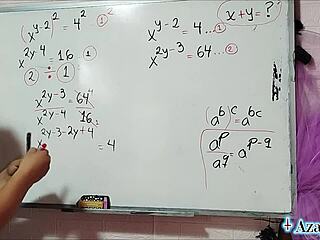 (x^{y-2})^2 = 4^2 ①
x^{2y-4} = 16 ②
② ÷ ①
\frac{x^{2y-3}}{x^{2y-4}} = \frac{64}{16}
x^{2y-3-2y+4} = 4
x^{y-2} = 4 ...①
x^{2y-3} = 64 ...②
x+y=?
(a^b)^c = a^{bc}
\frac{a^p}{a^q} = a^{p-q}
Aza